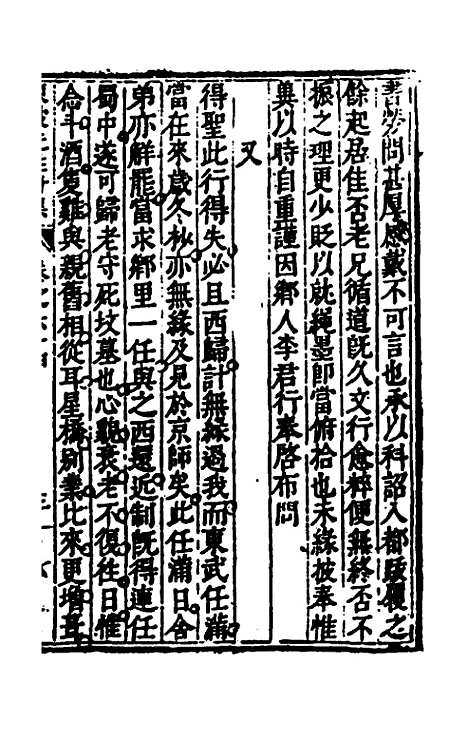 書勞問甚厚感戴不可言也承以科詔入都跋履之
餘起居佳否老兄循道旣久文行愈粹便無終否不
振之理更少貶以就繩墨卽當俯拾也未緣披奉惟
興以時自重謹因鄉人李君行奉啓布問
又
得聖此行得失必且西歸計無緣過我而東武任滿
當在來歲冬杪亦無緣及見於京師矣此任滿日舍
弟亦解罷當求鄉里一任與之西還近制旣得連任
蜀中遂可歸老守死墳墓也心貌衰老不復往日惟
念斗酒隻雞與親舊相從耳星橋别業比來更增葺